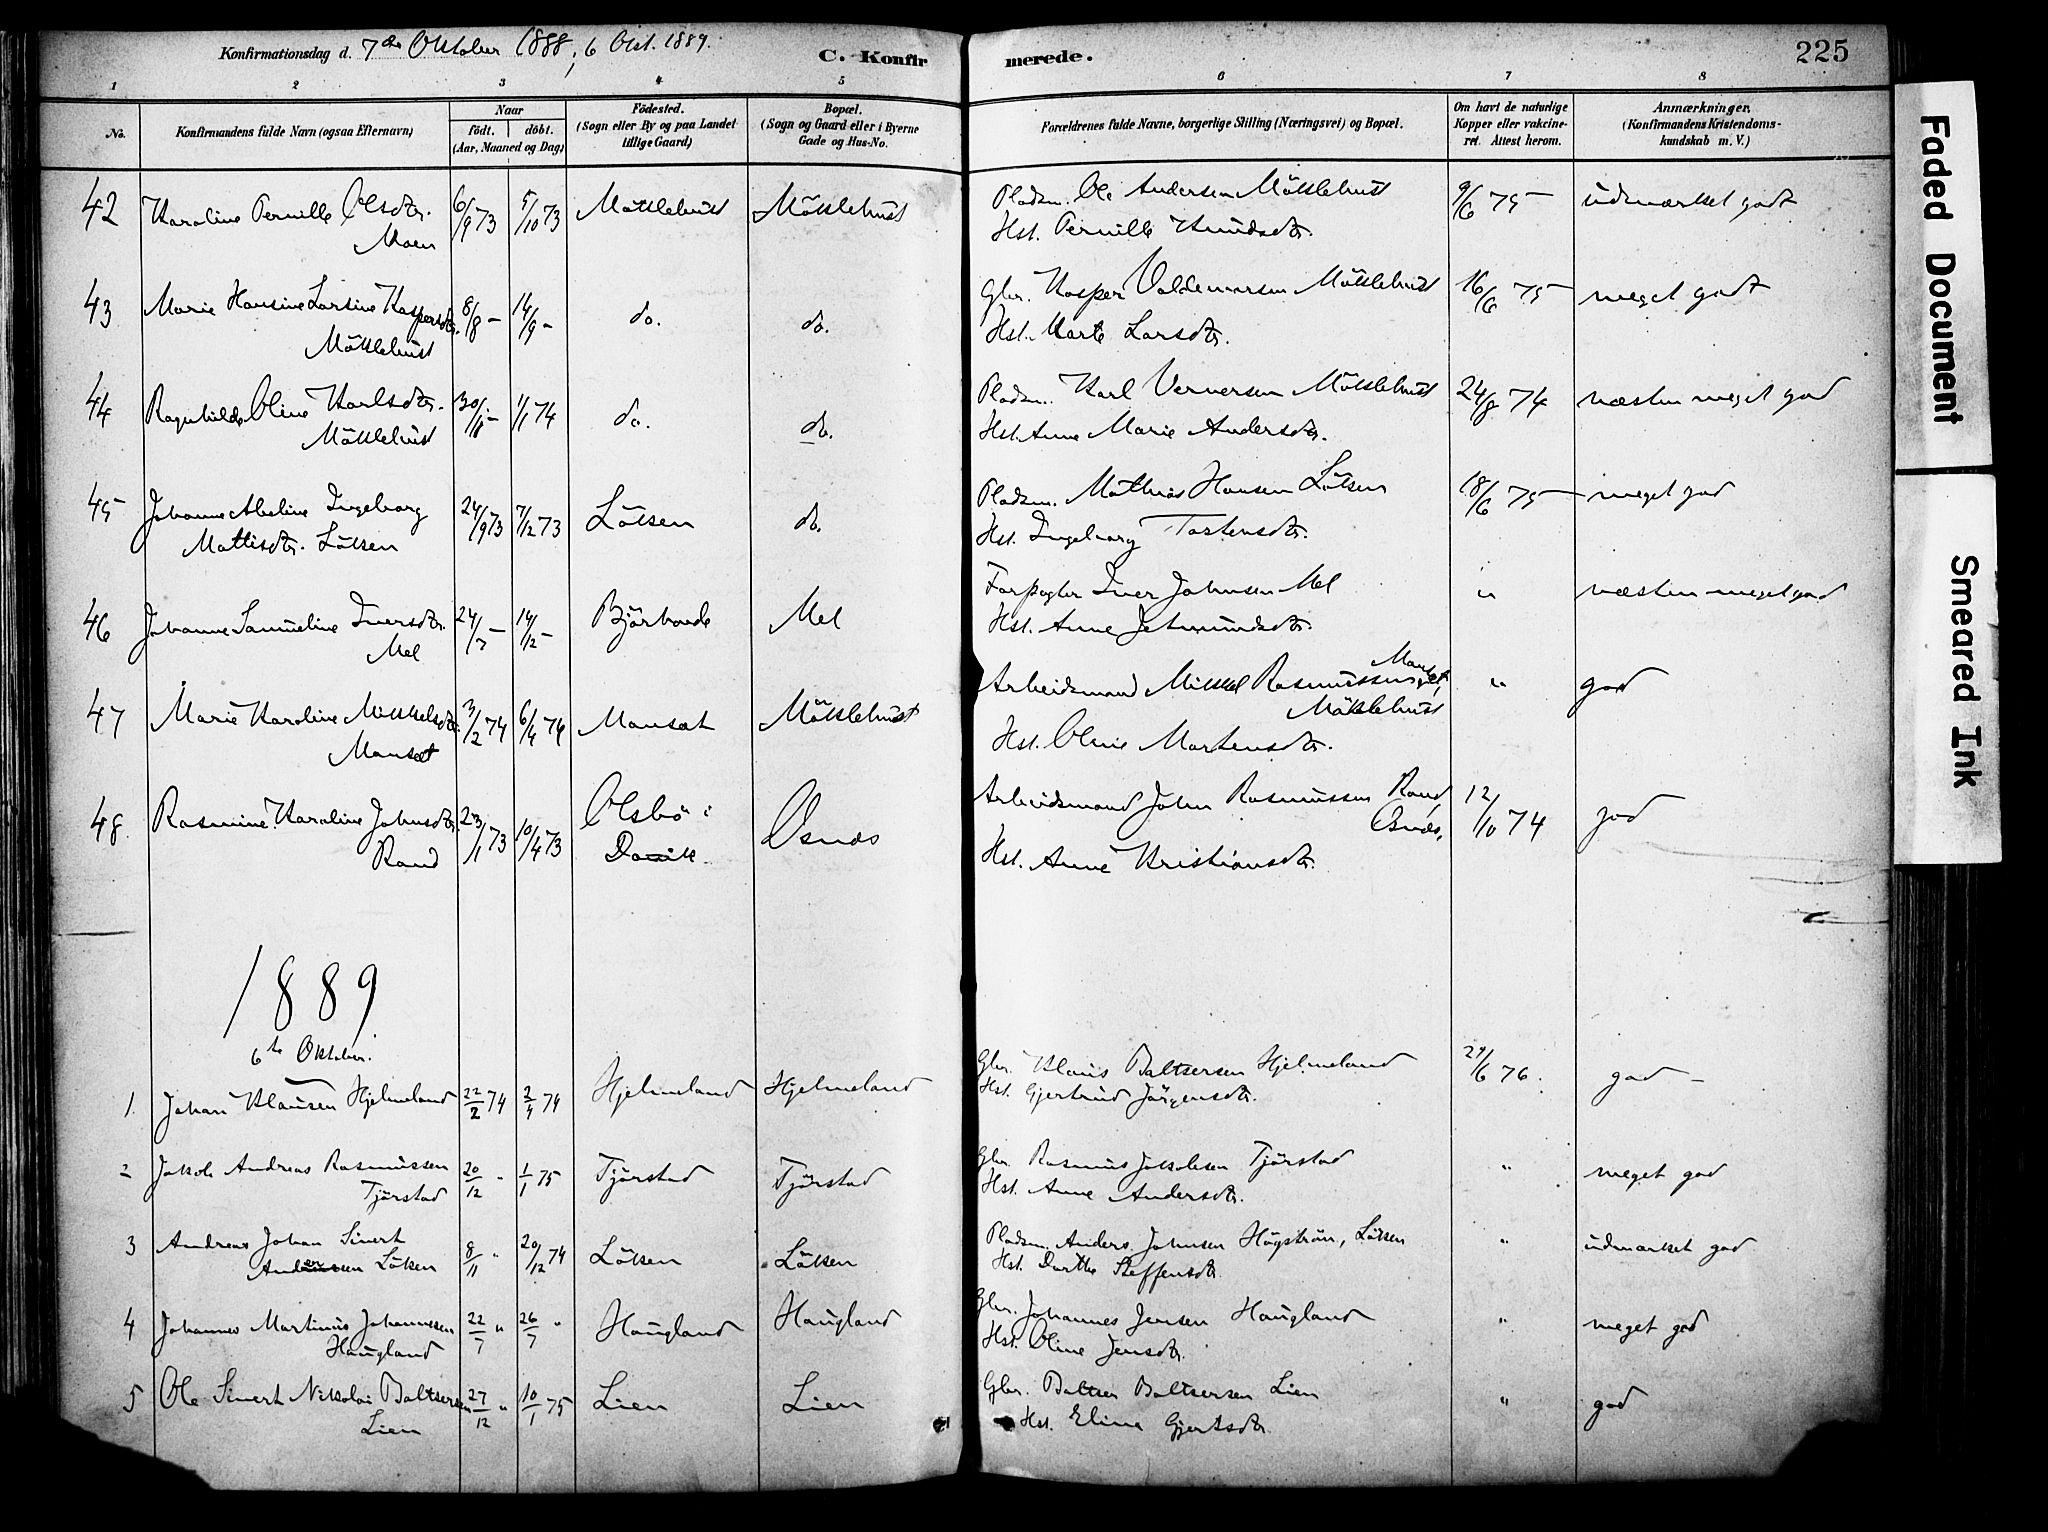 Konfirmationsdag d. 7de Oktober 1888, 6 Okt. 1889.
C. Konfirmerede.
225
1 2 3 4 5 6 7 8
No.
Konfirmandens fulde Navn (ogsaa Efternavn)
Naar
födt. döbt.
(Aar, Maaned og Dag)
Födested.
(Sogn eller By og paa Landet
tillige Gaard)
Bopæl.
(Sogn og Gaard eller i Byerne
Gade og Hus-No.
Forældrenes fulde Navne, borgerlige Stilling (Næringsvei) og Bopæl.
Om havt de naturlige
Kopper eller vakcine-
ret. Attest herom.
Anmærkninger.
(Konfirmandens Kristendoms-
kundskab m. V.)
42 Karoline Pernille Olsdtr. 6/9 73 5/10 73 Möklebust Möklebust Pladsm. Ole Andersen Möklebust 9/6 75 udmærket godt
Moen Hst. Pernille Knudsdtr.
43 Marie Hansine Larsine Kaspersdtr. 8/8 - 14/9 - do. do. Gbr. Kasper Valdemarsen Möklebust 16/6 75 meget godt
Möklebust Hst. Marte Larsdtr.
44 Ragnhilde Oline Karlsdtr. 30/11 - 1/1 74 do. do. Pladsm. Karl Vernersen Möklebust 24/8 74 næsten meget god
Möklebust Hst. Anne Marie Andersdtr.
45 Johanne Abeline Ingeborg 24/9 73 7/12 73 Lötsen do. Pladsm. Mathias Hansen Lötsen 18/6 75 meget god
Mattisdtr. Lötsen Hst. Ingeborg Tostensdtr.
46 Johanne Samueline Iversdtr. 24/7 - 14/12 - Björhovde Mel Forpagter Iver Johnsen Mel " næsten meget god
Mel Hst. Anne Jetmundsdtr.
47 Marie Karoline Mikkelsdtr. 3/2 74 6/4 74 Mansæt Möklebust Arbeidsmand Mikkel Rasmussen Mansæt, " god
Mansæt Möklebust
Hst. Oline Martensdtr.
48. Rasmine Karoline Johnsdtr. 23/1 73 10/4 73 Olsbö i Osnes Arbeidsmand John Rasmussen Rand, 12/10 74 god
Rand Davik Osnes,
Hst. Anne Kristiansdtr.
1889
6te Oktober.
1. Johan Klausen Hjelmeland 22/2 74 3/4 74 Hjelmeland Hjelmeland Gbr. Klaus Baltsersen Hjelmeland 29/6 76. god -
Hst. Gjertrud Jörgensdtr.
2 Jakob Andreas Rasmussen 20/12 " 1/1 75 Tjörstad Tjörstad Gbr. Rasmus Jakobsen Tjörstad " meget god
Tjörstad Hst. Anne Andersdtr.
3 Andreas Johan Sivert 8/11 " 20/12 74 Lötsen Lötsen Pladsm. Anders Johnsen Högström, Lötsen " udmærket god
Andersen Lötsen Hst. Dorthe Steffensdtr.
4 Johannes Martinus Johannesen 22/7 " 26/7 " Haugland Haugland Gbr. Johannes Jensen Haugland " meget god
Haugland Hst. Oline Jensdtr.
5 Ole Sivert Nikolai Baltsersen 27/12 " 10/1 75 Lien Lien Gbr. Baltser Baltsersen Lien " god
Lien Hst. Eline Gjertsdtr.
Faded Document
Smeared Ink